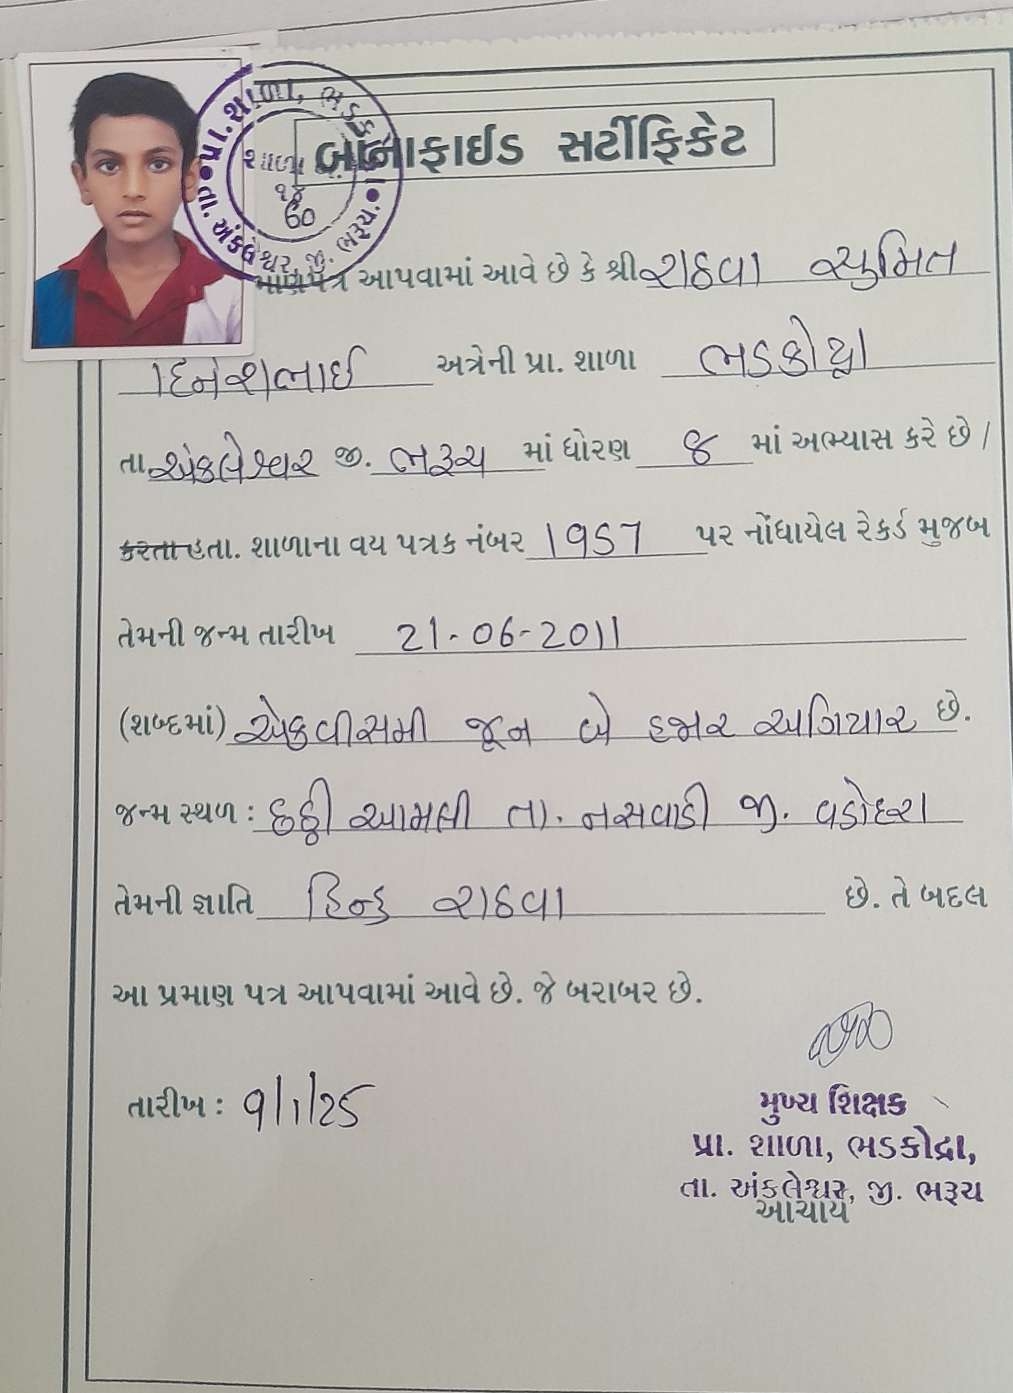 પ્રા. શાળા, ભડકોદ્રા
તા. અંકલેશ્વર, જી. ભરૂચ.
શાળા
60
બોનાફાઈડ સર્ટીફિકેટ
પ્રમાણપત્ર આપવામાં આવે છે કે શ્રી રાઠવા સુમિત
દિનેશભાઈ અત્રેની પ્રા. શાળા ભડકોદ્રા
તા. અંકલેશ્વર જી. ભરૂચ માં ધોરણ ૭ માં અભ્યાસ કરે છે /
કરતા હતા. શાળાના વય પત્રક નંબર 1957 પર નોંધાયેલ રેકર્ડ મુજબ
તેમની જન્મ તારીખ 21-06-2011
(શબ્દમાં) એકવીસમી જૂન બે હજાર અગિયાર છે.
જન્મ સ્થળ : આમલી તા. નસવાડી જી. વડોદરા
તેમની જ્ઞાતિ હિન્દુ રાઠવા છે. તે બદલ
આ પ્રમાણ પત્ર આપવામાં આવે છે. જે બરાબર છે.
તારીખ : 9/1/25
મુખ્ય શિક્ષક
પ્રા. શાળા, ભડકોદ્રા,
તા. અંકલેશ્વર, જી. ભરૂચ
આચાર્ય